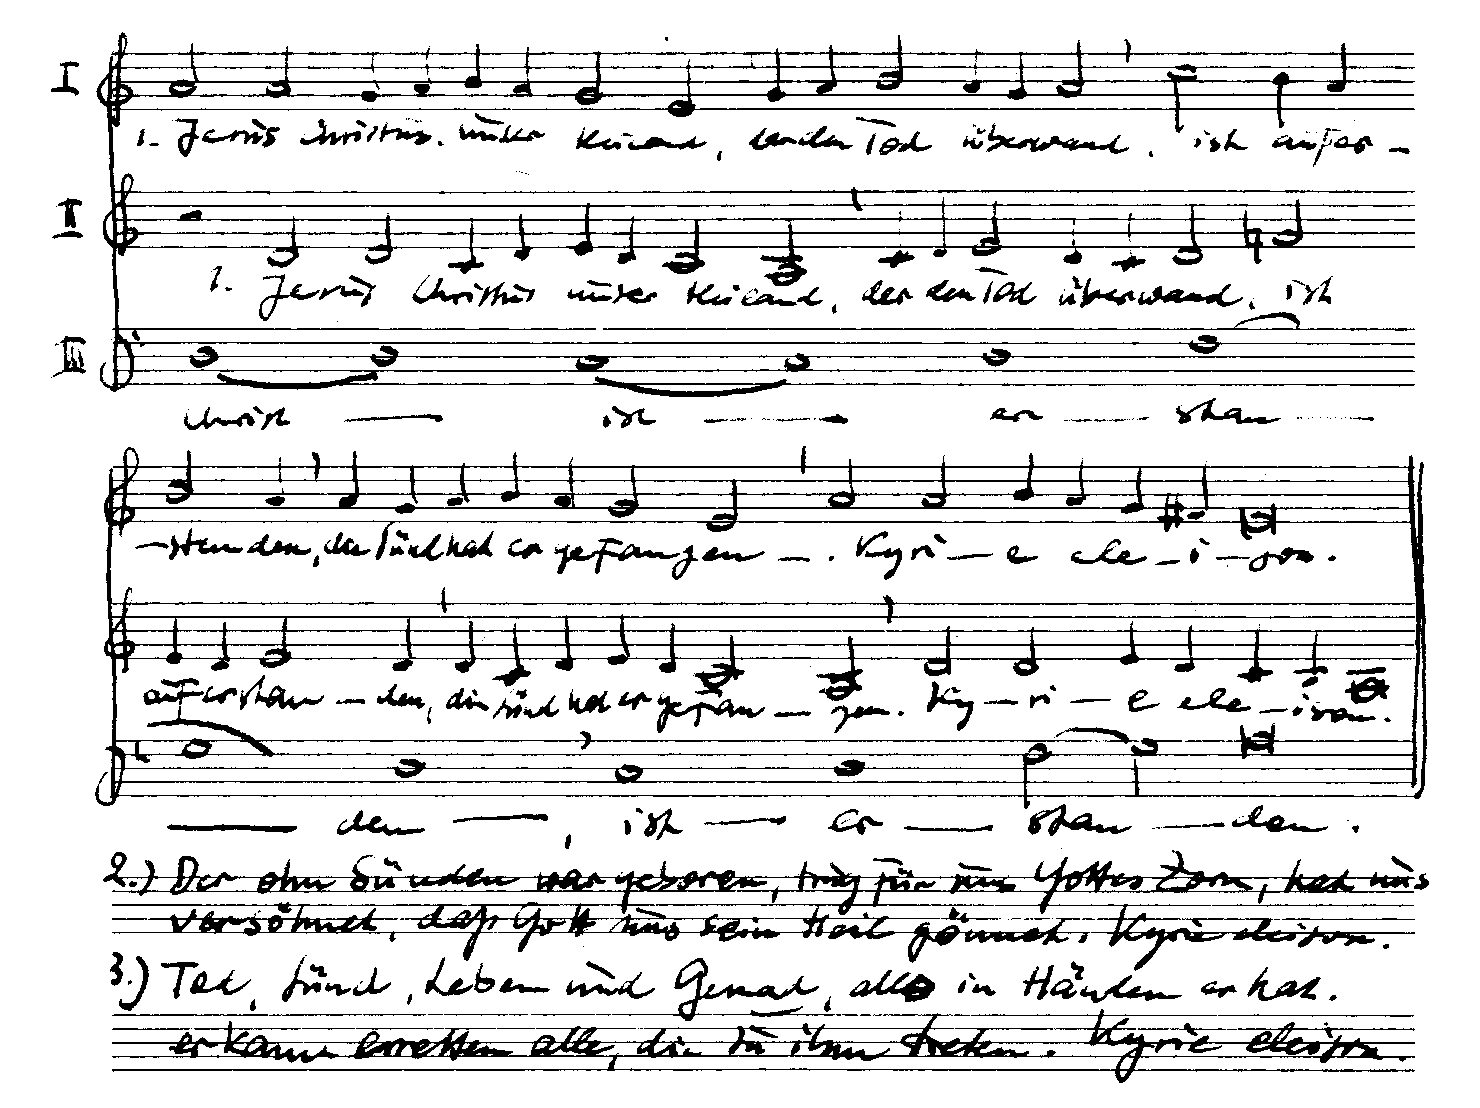 I
1. Jesus Christus, unser Heiland, der den Tod überwand, ist aufer-
II
1. Jesus Christus unser Heiland, der den Tod überwand, ist
III
Christ — ist — er — stan —
-standen, die Sünd hat er gefangen — . Kyri-e ele-i-son.
auferstan-den, die Sünd hat er gefan-gen. Ky-ri-e ele-ison.
— den —, ist — er — stan — den.
2.) Der ohn Sünden war geboren, trug für uns Gottes Zorn, hat uns
versöhnet, daß Gott uns sein Heil gönnet. Kyrie eleison.
3.) Tod, Sünd, Leben und Genad, alls in Händen er hat.
er kann erretten alle, die zu ihm treten. Kyrie eleison.